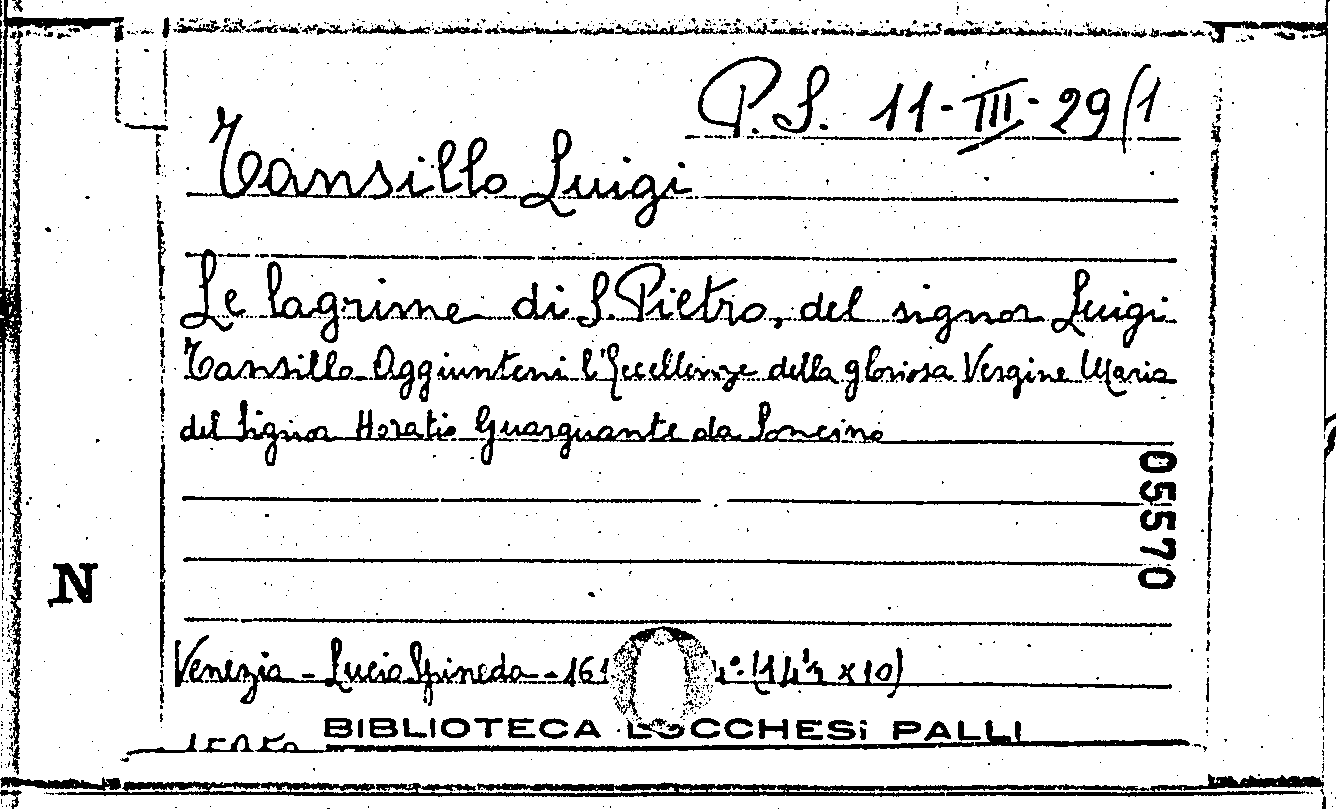 P.S. 11-III-29(1
Tansillo Luigi
Le lagrime di S. Pietro, del signor Luigi
Tansillo Aggiuntevi l'Eccellenze della gloriosa Vergine Maria
del Signor Horatio Guarguante da Soncino
05570
N
Venezia - Lucio Spineda - 161 4º (14½ x 10)
BIBLIOTECA LUCCHESi PALLI